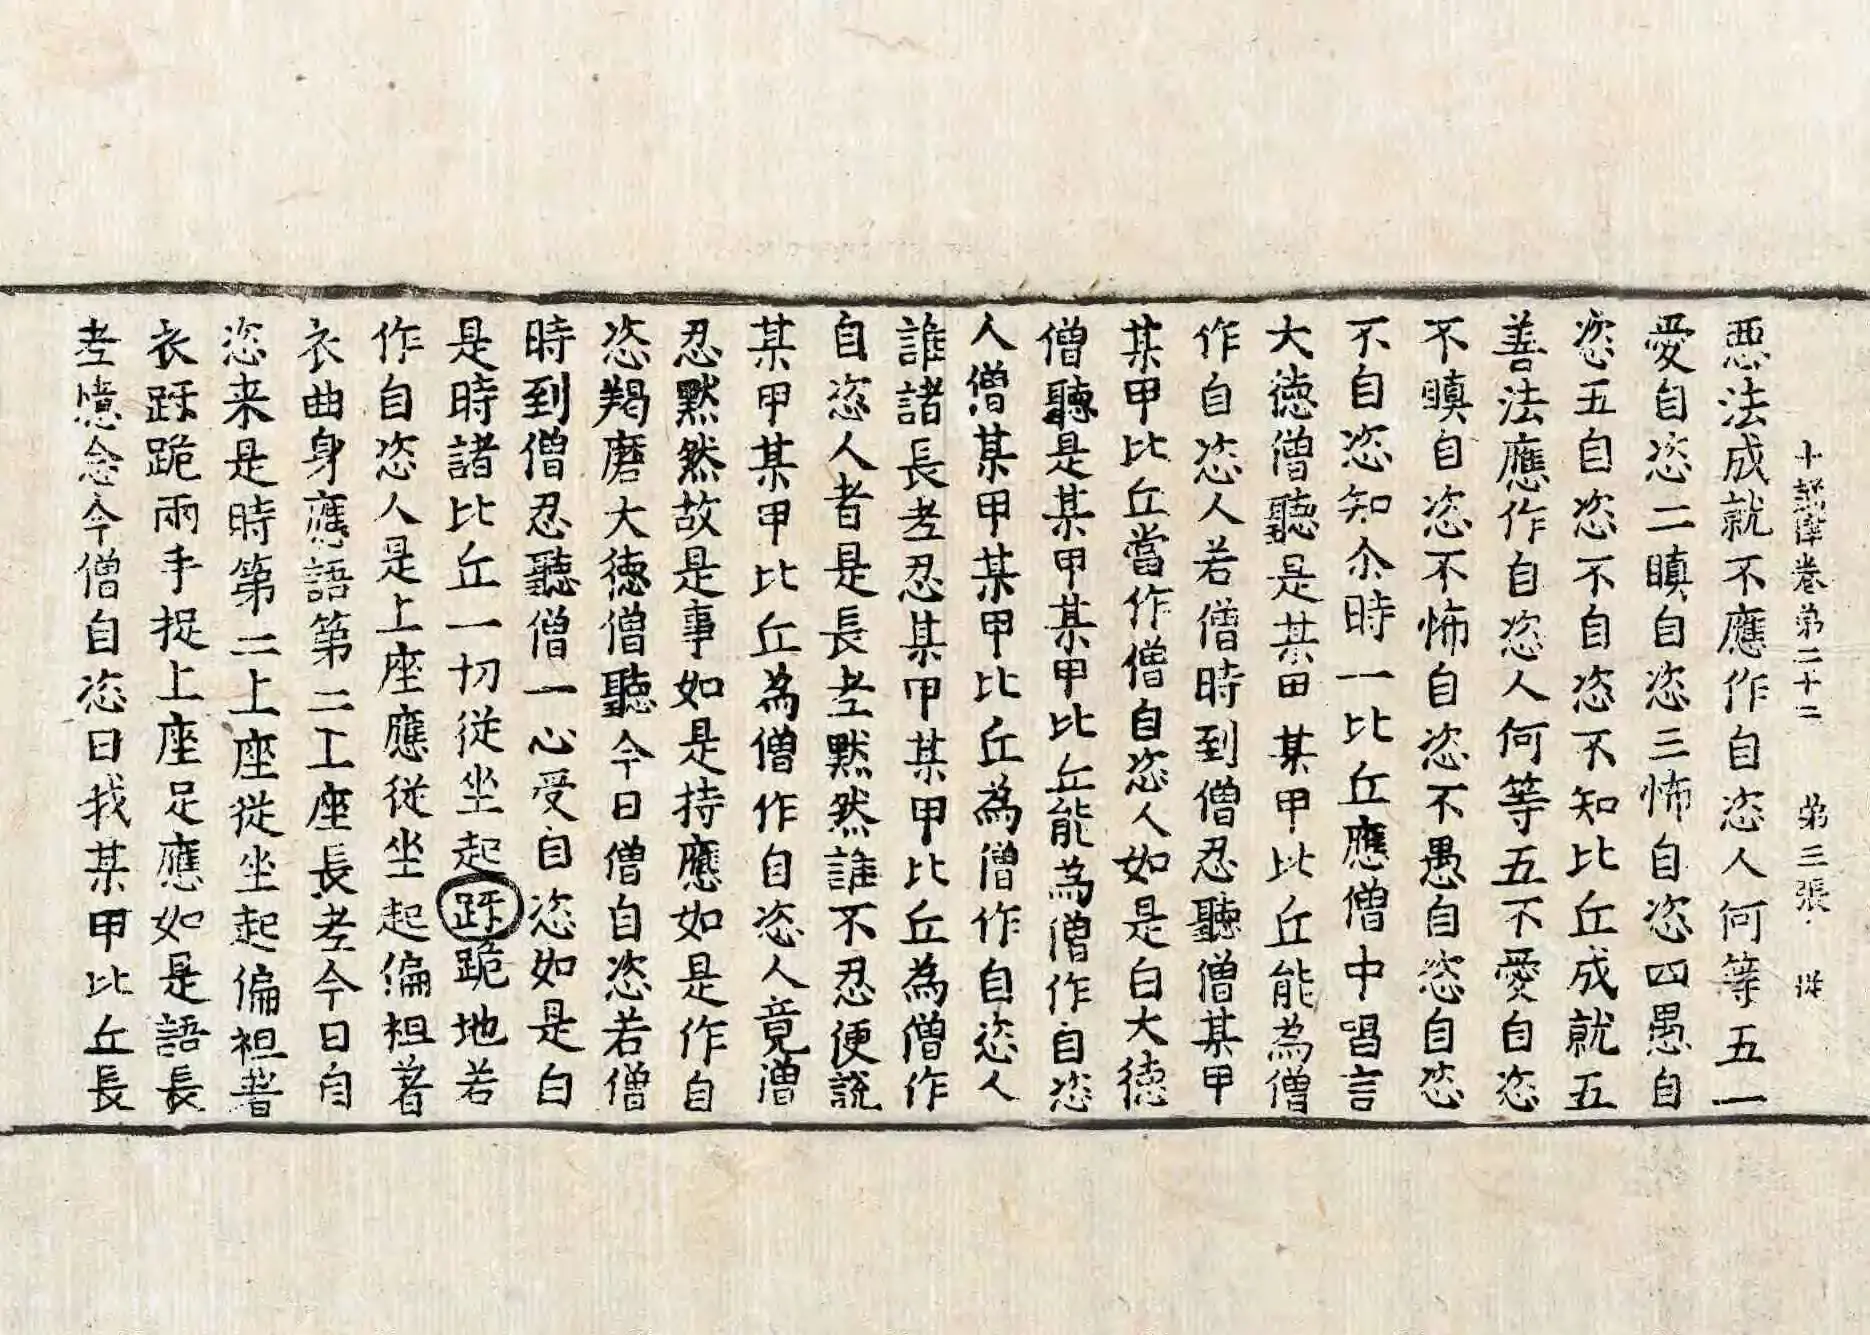 十誦律卷第二十二　第三張　從
惡法成就不應作自恣人何等五一
愛自恣二瞋自恣三怖自恣四愚自
恣五自恣不自恣不知比丘成就五
善法應作自恣人何等五不愛自恣
不瞋自恣不怖自恣不愚自恣自恣
不自恣知尒時一比丘應僧中唱言
大徳僧聽是某甲某甲比丘能為僧
作自恣人若僧時到僧忍聽僧某甲
某甲比丘當作僧自恣人如是白大徳
僧聽是某甲某甲比丘能為僧作自恣
人僧某甲某甲比丘為僧作自恣人
誰諸長老忍某甲某甲比丘為僧作
自恣人者是長老黙然誰不忍便說
某甲某甲比丘為僧作自恣人竟僧
忍黙然故是事如是持應如是作自
恣羯磨大徳僧聽今日僧自恣若僧
時到僧忍聽僧一心受自恣如是白
是時諸比丘一切從坐起𨁝跪地若
作自恣人是上座應從坐起偏袒著
衣曲身應語第二上座長老今日自
恣来是時第二上座從坐起偏袒著
衣𨁝跪兩手捉上座足應如是語長
老憶念今僧自恣日我某甲比丘長